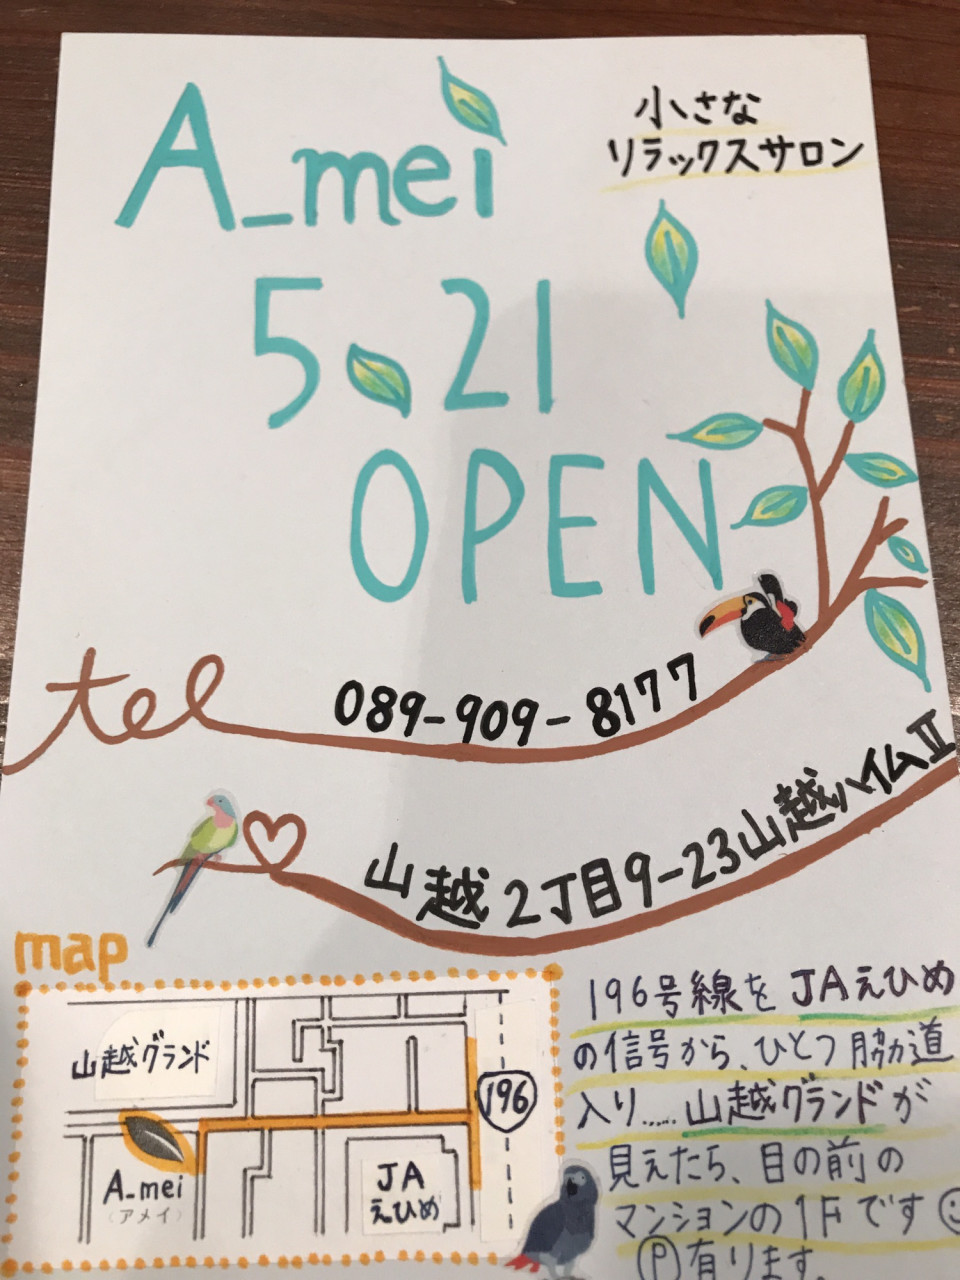 A_mei
小さな
リラックスサロン
5.21
OPEN
tel 089-909-8177
山越2丁目9-23山越ハイムⅡ
map
山越グランド
196
A_mei
(アメイ)
JA
えひめ
196号線をJAえひめ
の信号から、ひとつ脇道
入り……山越グランドが
見えたら、目の前の
マンションの1Fです☺
Ⓟ有ります。